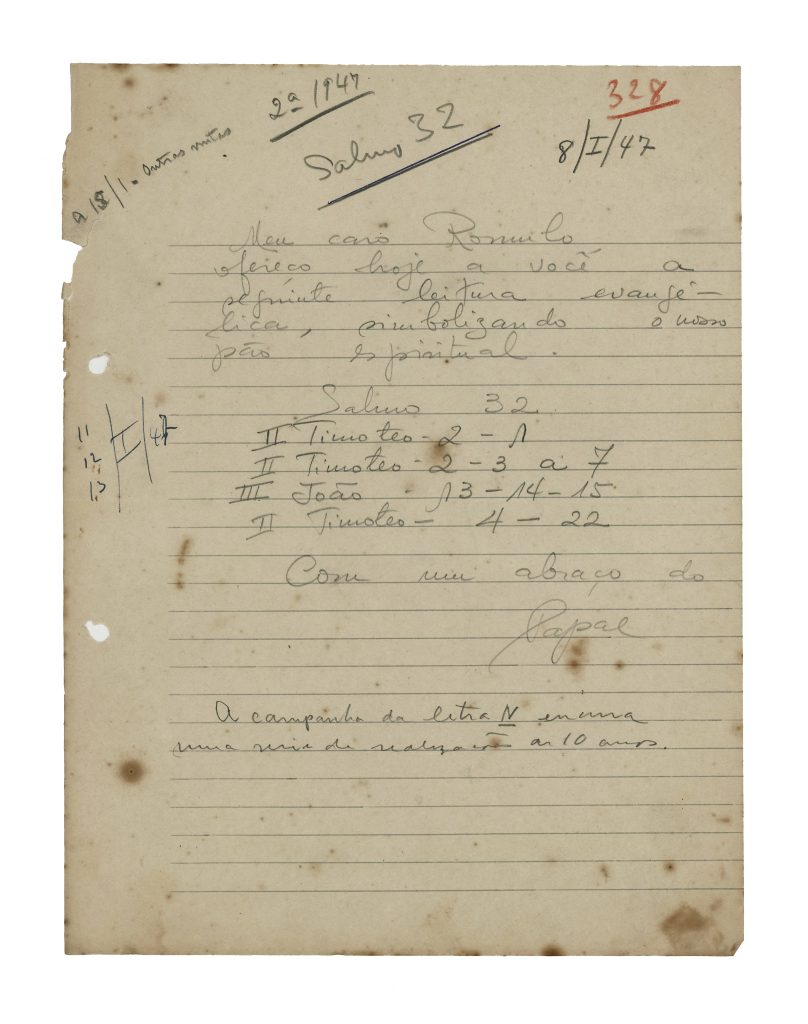 2ª/1947
328
Salmo 32
8/I/47
a 15/1. Outras notas
Meu caro Romulo
ofereço hoje a você a
seguinte leitura evangé-
lica, simbolizando o nosso
pão espiritual.
Salmo 32
II Timoteo - 2 - 1
11 12 13 / I / 47
II Timoteo - 2 - 3 a 7
III João - 13 - 14 - 15
II Timoteo - 4 - 22
Com um abraço do
Papae
A campanha da letra N
uma serie de realizações 10 anos.